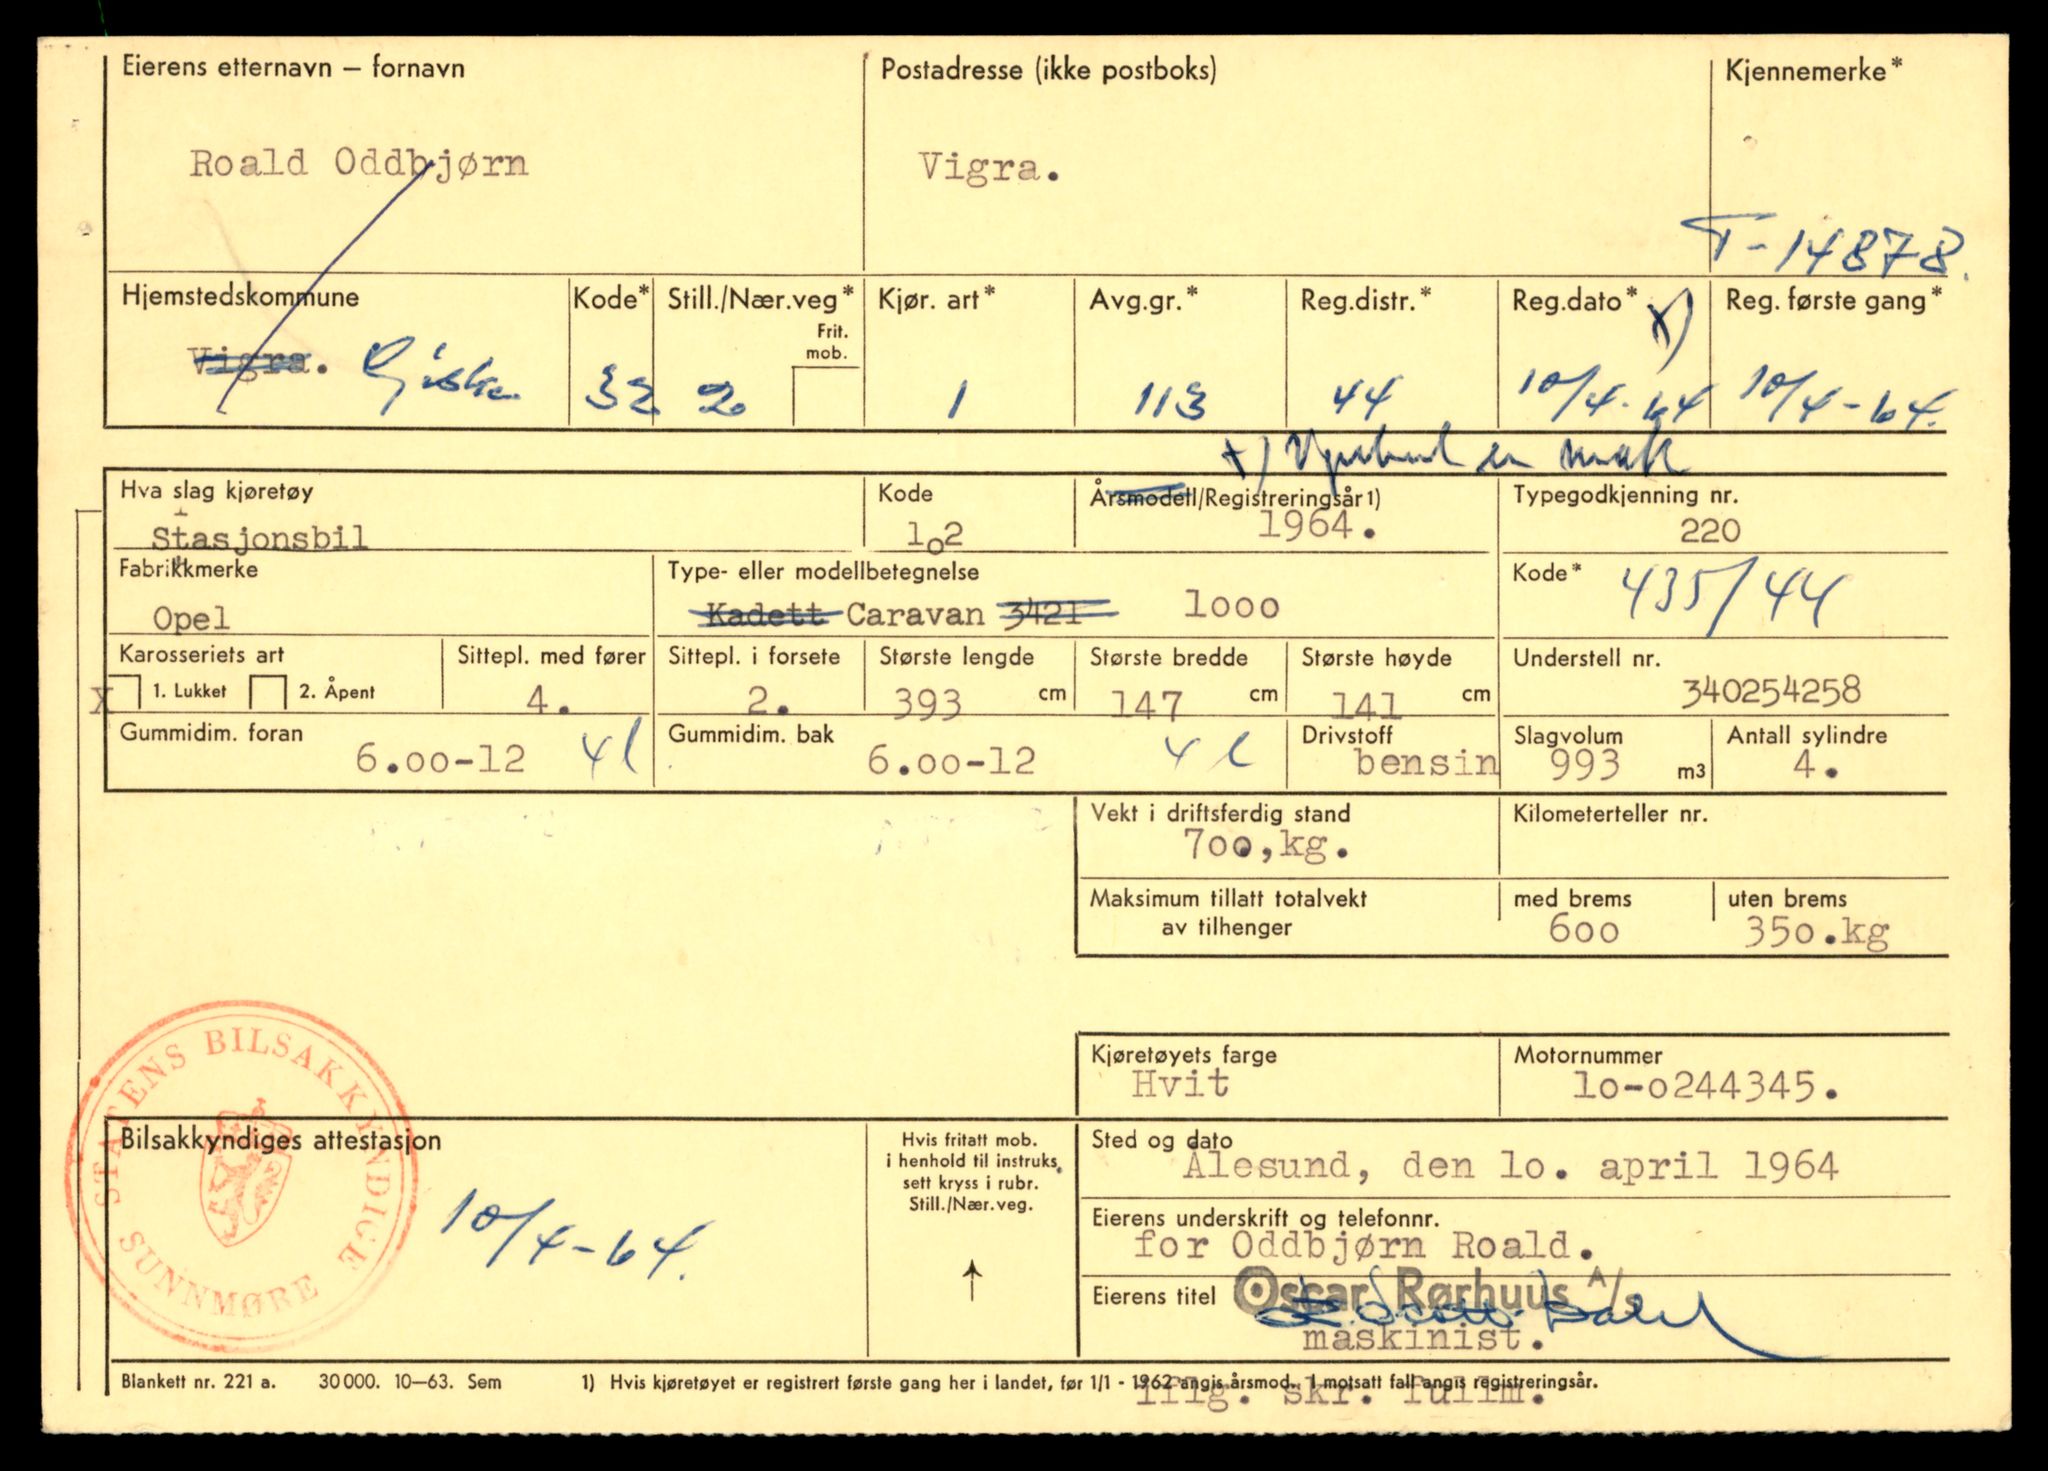 Eierens etternavn – fornavn Postadresse (ikke postboks) Kjennemerke*
Roald Oddbjørn Vigra.
T-14878.
Hjemstedskommune Kode* Still./Nær.veg* Kjør. art* Avg.gr.* Reg.distr.* Reg.dato* x) Reg. første gang*
Frit. mob.
Vigra. Giske 32 2 1 113 44 10/4-64 10/4-64.
x) en
Hva slag kjøretøy Kode Årsmodell/Registreringsår 1) Typegodkjenning nr.
Stasjonsbil 1o2 1964. 220
Fabrikkmerke Type- eller modellbetegnelse Kode* 435/44
Opel Kadett Caravan 3421 1ooo
Karosseriets art Sittepl. med fører Sittepl. i forsete Største lengde Største bredde Største høyde Understell nr.
X 1. Lukket 2. Åpent 4. 2. 393 cm 147 cm 141 cm 340254258
Gummidim. foran Gummidim. bak Drivstoff Slagvolum Antall sylindre
6.oo-12 4l 6.oo-12 4l bensin 993 m3 4.
Vekt i driftsferdig stand Kilometerteller nr.
7oo,kg.
Maksimum tillatt totalvekt med brems uten brems
av tilhenger 6oo 35o.kg
Kjøretøyets farge Motornummer
Hvit 1o-o244345.
STATENS BILSAKKYNDIGE
SUNNMØRE
Bilsakkyndiges attestasjon
10/4-64.
Hvis fritatt mob.
i henhold til instruks,
sett kryss i rubr.
Still./Nær.veg.
Sted og dato
Ålesund, den 1o. april 1964
Eierens underskrift og telefonnr.
for Oddbjørn Roald.
Eierens titel Oscar Rørhuus A/s
maskinist.
Blankett nr. 221 a. 30 000. 10–63. Sem 1) Hvis kjøretøyet er registrert første gang her i landet, før 1/1 - 1962 angis årsmod. I motsatt fall angis registreringsår.
iflg. skr. fullm.